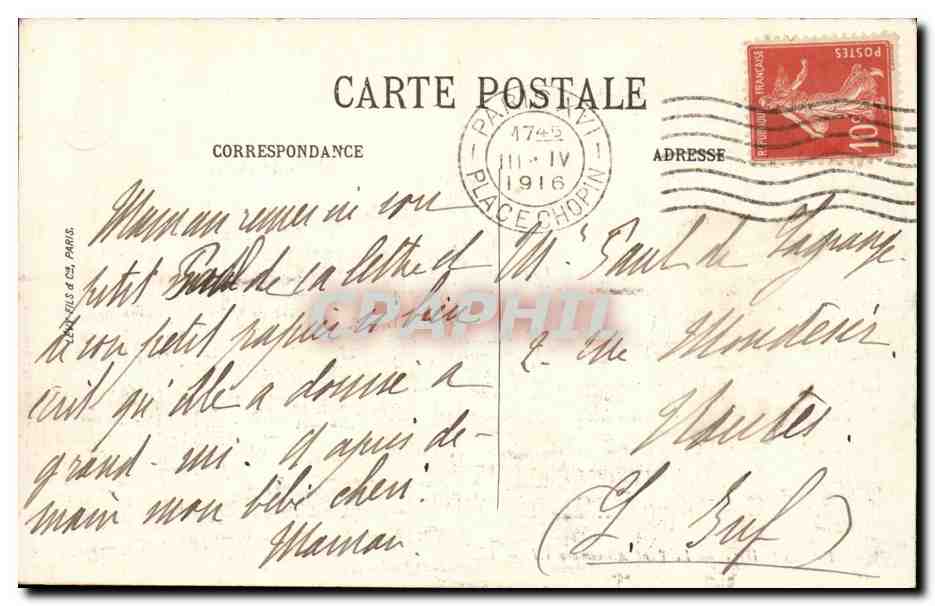 CARTE POSTALE
CORRESPONDANCE
ADRESSE
PARIS XVI
1745
III · IV
1916
PLACE CHOPIN
REPUBLIQUE FRANÇAISE
POSTES
10c
LEVY FILS & Cie, PARIS.
Maman remercie son
petit Paul de sa lettre et
de son petit papier si bien
écrit qu'elle a donné à
grand-mi. A après de-
main mon bébé chéri.
Maman.
Mr Paul de Lagrange
2 rue Mondésir.
Nantes.
(L. Inf)
CPAPHIL